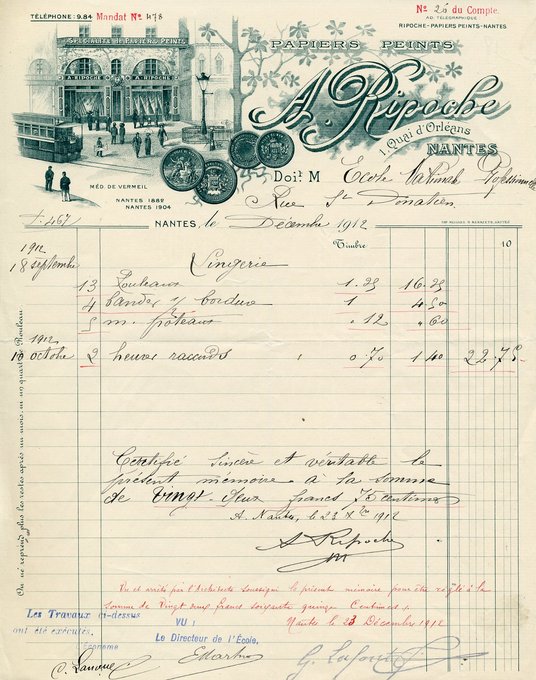 TÉLÉPHONE: 9.84 Mandat No 478
No 26 du Compte.
AD. TÉLÉGRAPHIQUE
RIPOCHE-PAPIERS PEINTS-NANTES
SPÉCIALITÉ DE PAPIERS PEINTS
A. RIPOCHE A. RIPOCHE
PAPIERS PEINTS
A. Ripoche
1, Quai d'Orléans
NANTES
MÉD. DE VERMEIL
NANTES 1882
NANTES 1904
Doit M Ecole Nationale Professionnelle
Rue St Donatien
f. 467
NANTES, le Décembre 1912
1912 Timbre 10
18 septembre Lingerie
13 Rouleaux 1.25 16.25
4 bandes ½ bordure 1 4.50
5 m. poteaux " 12 " 60
1912
10 octobre 2 heures raccords 0.70 1.40 22.75
On ne reprend plus les restes après un mois, ni un quart de Rouleau
Certifié sincère et véritable le
présent mémoire à la somme
de Vingt deux francs 75 centimes
A. Nantes, le 23 Xbre 1912
A. Ripoche
Vu et arrêté par l'Architecte soussigné le présent mémoire pour être réglé à la
somme de Vingt deux francs soixante quinze Centimes.
Nantes le 23 Décembre 1912
Les Travaux ci-dessus
ont été exécutés.
L'Econome
VU :
Le Directeur de l'École,